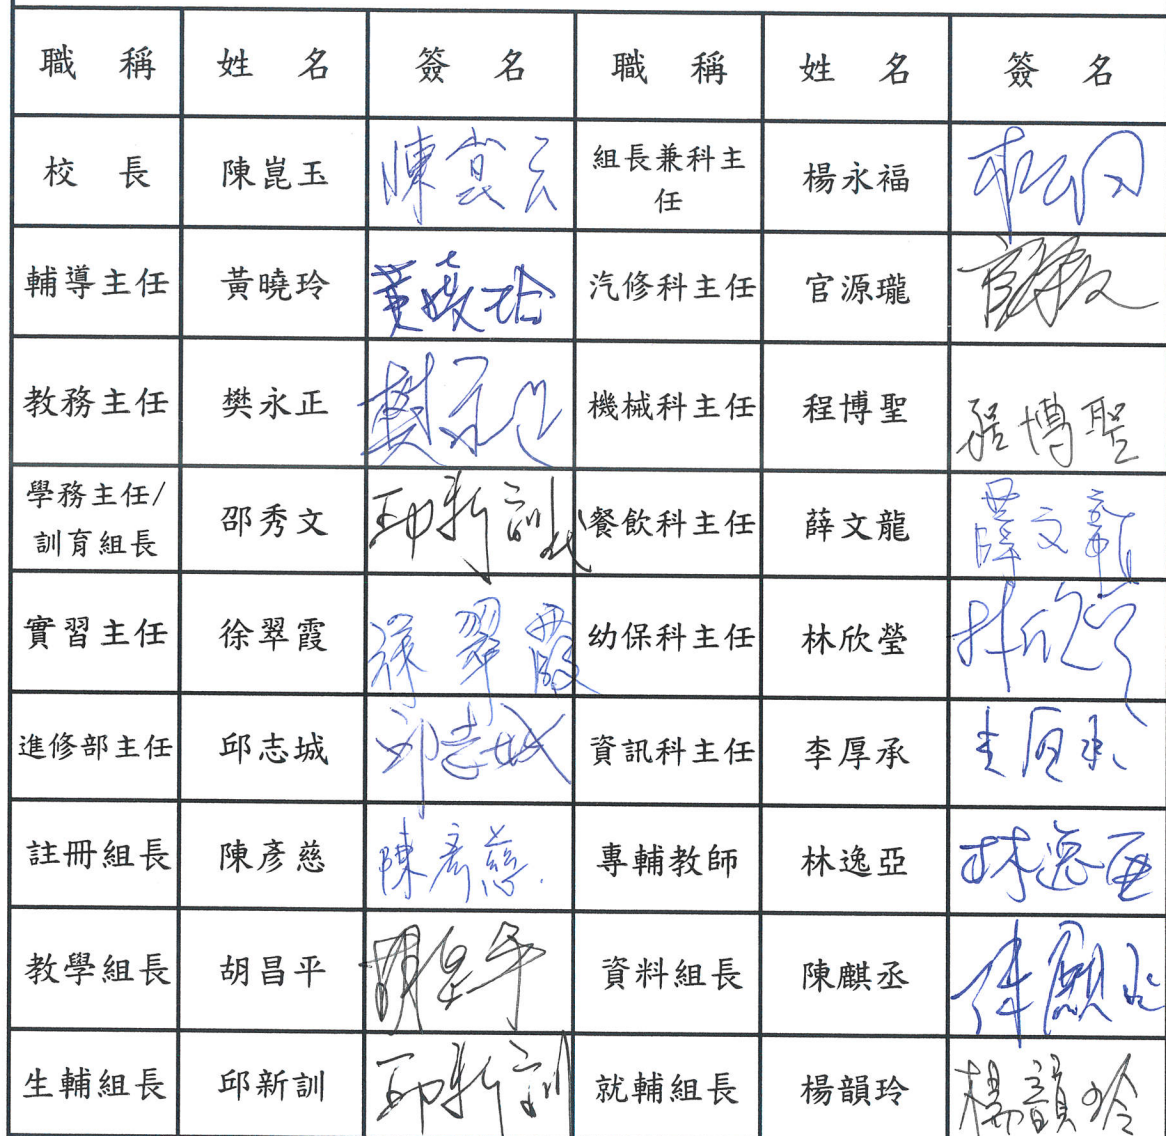 職稱 姓名 簽名 職稱 姓名 簽名
校長 陳崑玉 陳崑玉 組長兼科主任 楊永福
輔導主任 黃曉玲 黃曉玲 汽修科主任 官源瓏
教務主任 樊永正 樊永正 機械科主任 程博聖 程博聖
學務主任/訓育組長 邵秀文 邱新訓代 餐飲科主任 薛文龍 薛文龍
實習主任 徐翠霞 徐翠霞 幼保科主任 林欣瑩 林欣瑩
進修部主任 邱志城 邱志城 資訊科主任 李厚承 李厚承
註冊組長 陳彥慈 陳彥慈 專輔教師 林逸亞 林逸亞
教學組長 胡昌平 胡昌平 資料組長 陳麒丞 陳麒丞
生輔組長 邱新訓 邱新訓 就輔組長 楊韻玲 楊韻玲